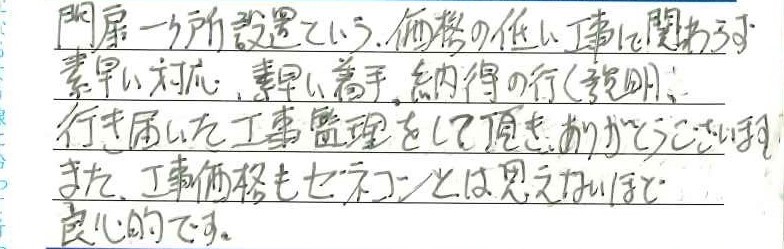 門扉一ヶ所設置という、価格の低い工事に関わらず
素早い対応、素早い着手、納得の行く説明、
行き届いた工事監理をして頂き、ありがとうございます
また、工事価格もゼネコンとは思えないほど
良心的です。